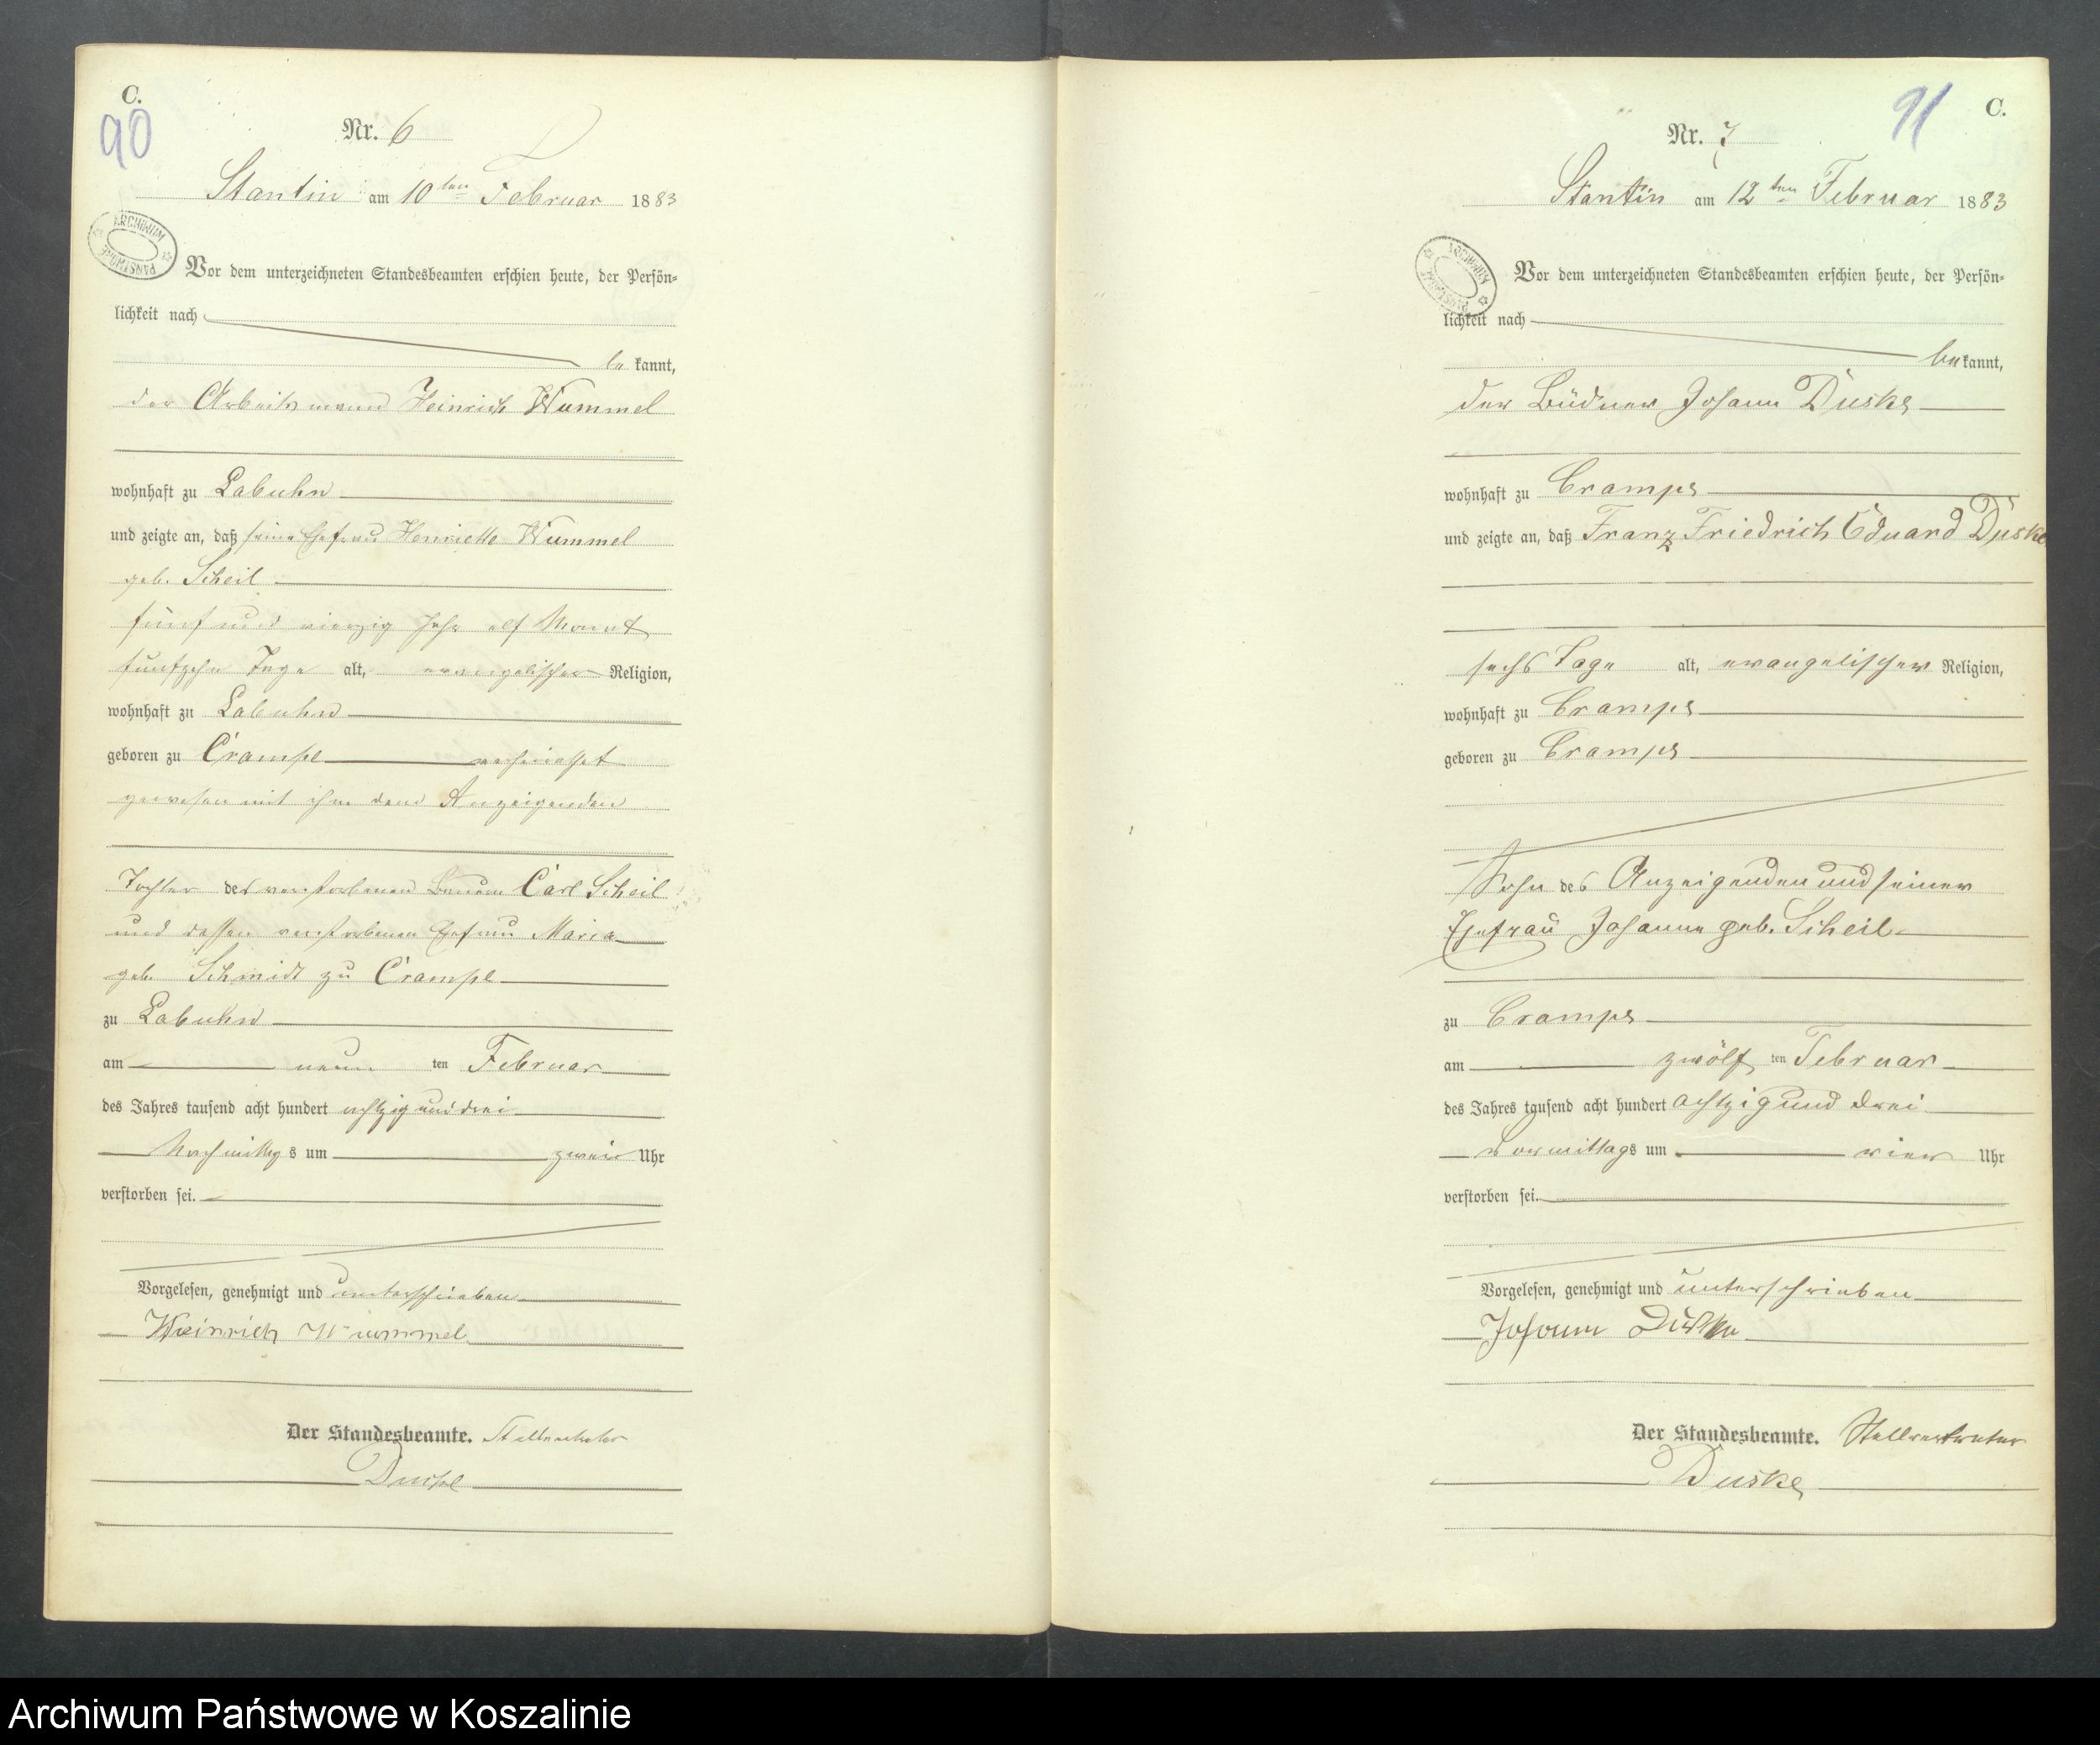 C.
90
Nr. 6
Stantin am 10ten Februar 1883
ARCHIWUM PAŃSTWOWE
Vor dem unterzeichneten Standesbeamten erschien heute, der Persön-
lichkeit nach
be kannt,
der Arbeitsmann Heinrich Wummel
wohnhaft zu Labuhn
und zeigte an, daß seine Ehefrau Henriette Wummel
geb. Scheil
fünf und vierzig Jahr elf Monat
funfzehn Tage alt, evangelischer Religion,
wohnhaft zu Labuhn
geboren zu Crampe verheirathet
gewesen mit ihm dem Anzeigenden
Tochter des verstorbenen Carl Scheil
und dessen verstorbenen Ehefrau Maria
geb. Schmidt zu Crampe
zu Labuhn
am neun ten Februar
des Jahres tausend acht hundert achtzig und drei
Nachmittags um zwei Uhr
verstorben sei.
Vorgelesen, genehmigt und unterschrieben
Heinrich Wummel
Der Standesbeamte. Stellvertreter
Duske
C.
91
Nr. 7
Stantin am 12ten Februar 1883
ARCHIWUM PAŃSTWOWE
Vor dem unterzeichneten Standesbeamten erschien heute, der Persön-
lichkeit nach
be kannt,
der Büdner Johann Duske
wohnhaft zu Crampe
und zeigte an, daß Franz Friedrich Eduard Duske
sechs Tage alt, evangelischer Religion,
wohnhaft zu Crampe
geboren zu Crampe
Sohn des Anzeigenden und seiner
Ehefrau Johanne geb. Scheil
zu Crampe
am zwölf ten Februar
des Jahres tausend acht hundert achtzig und drei
Vormittags um vier Uhr
verstorben sei.
Vorgelesen, genehmigt und unterschrieben
Johann Duske
Der Standesbeamte. Stellvertreter
Duske
Archiwum Państwowe w Koszalinie